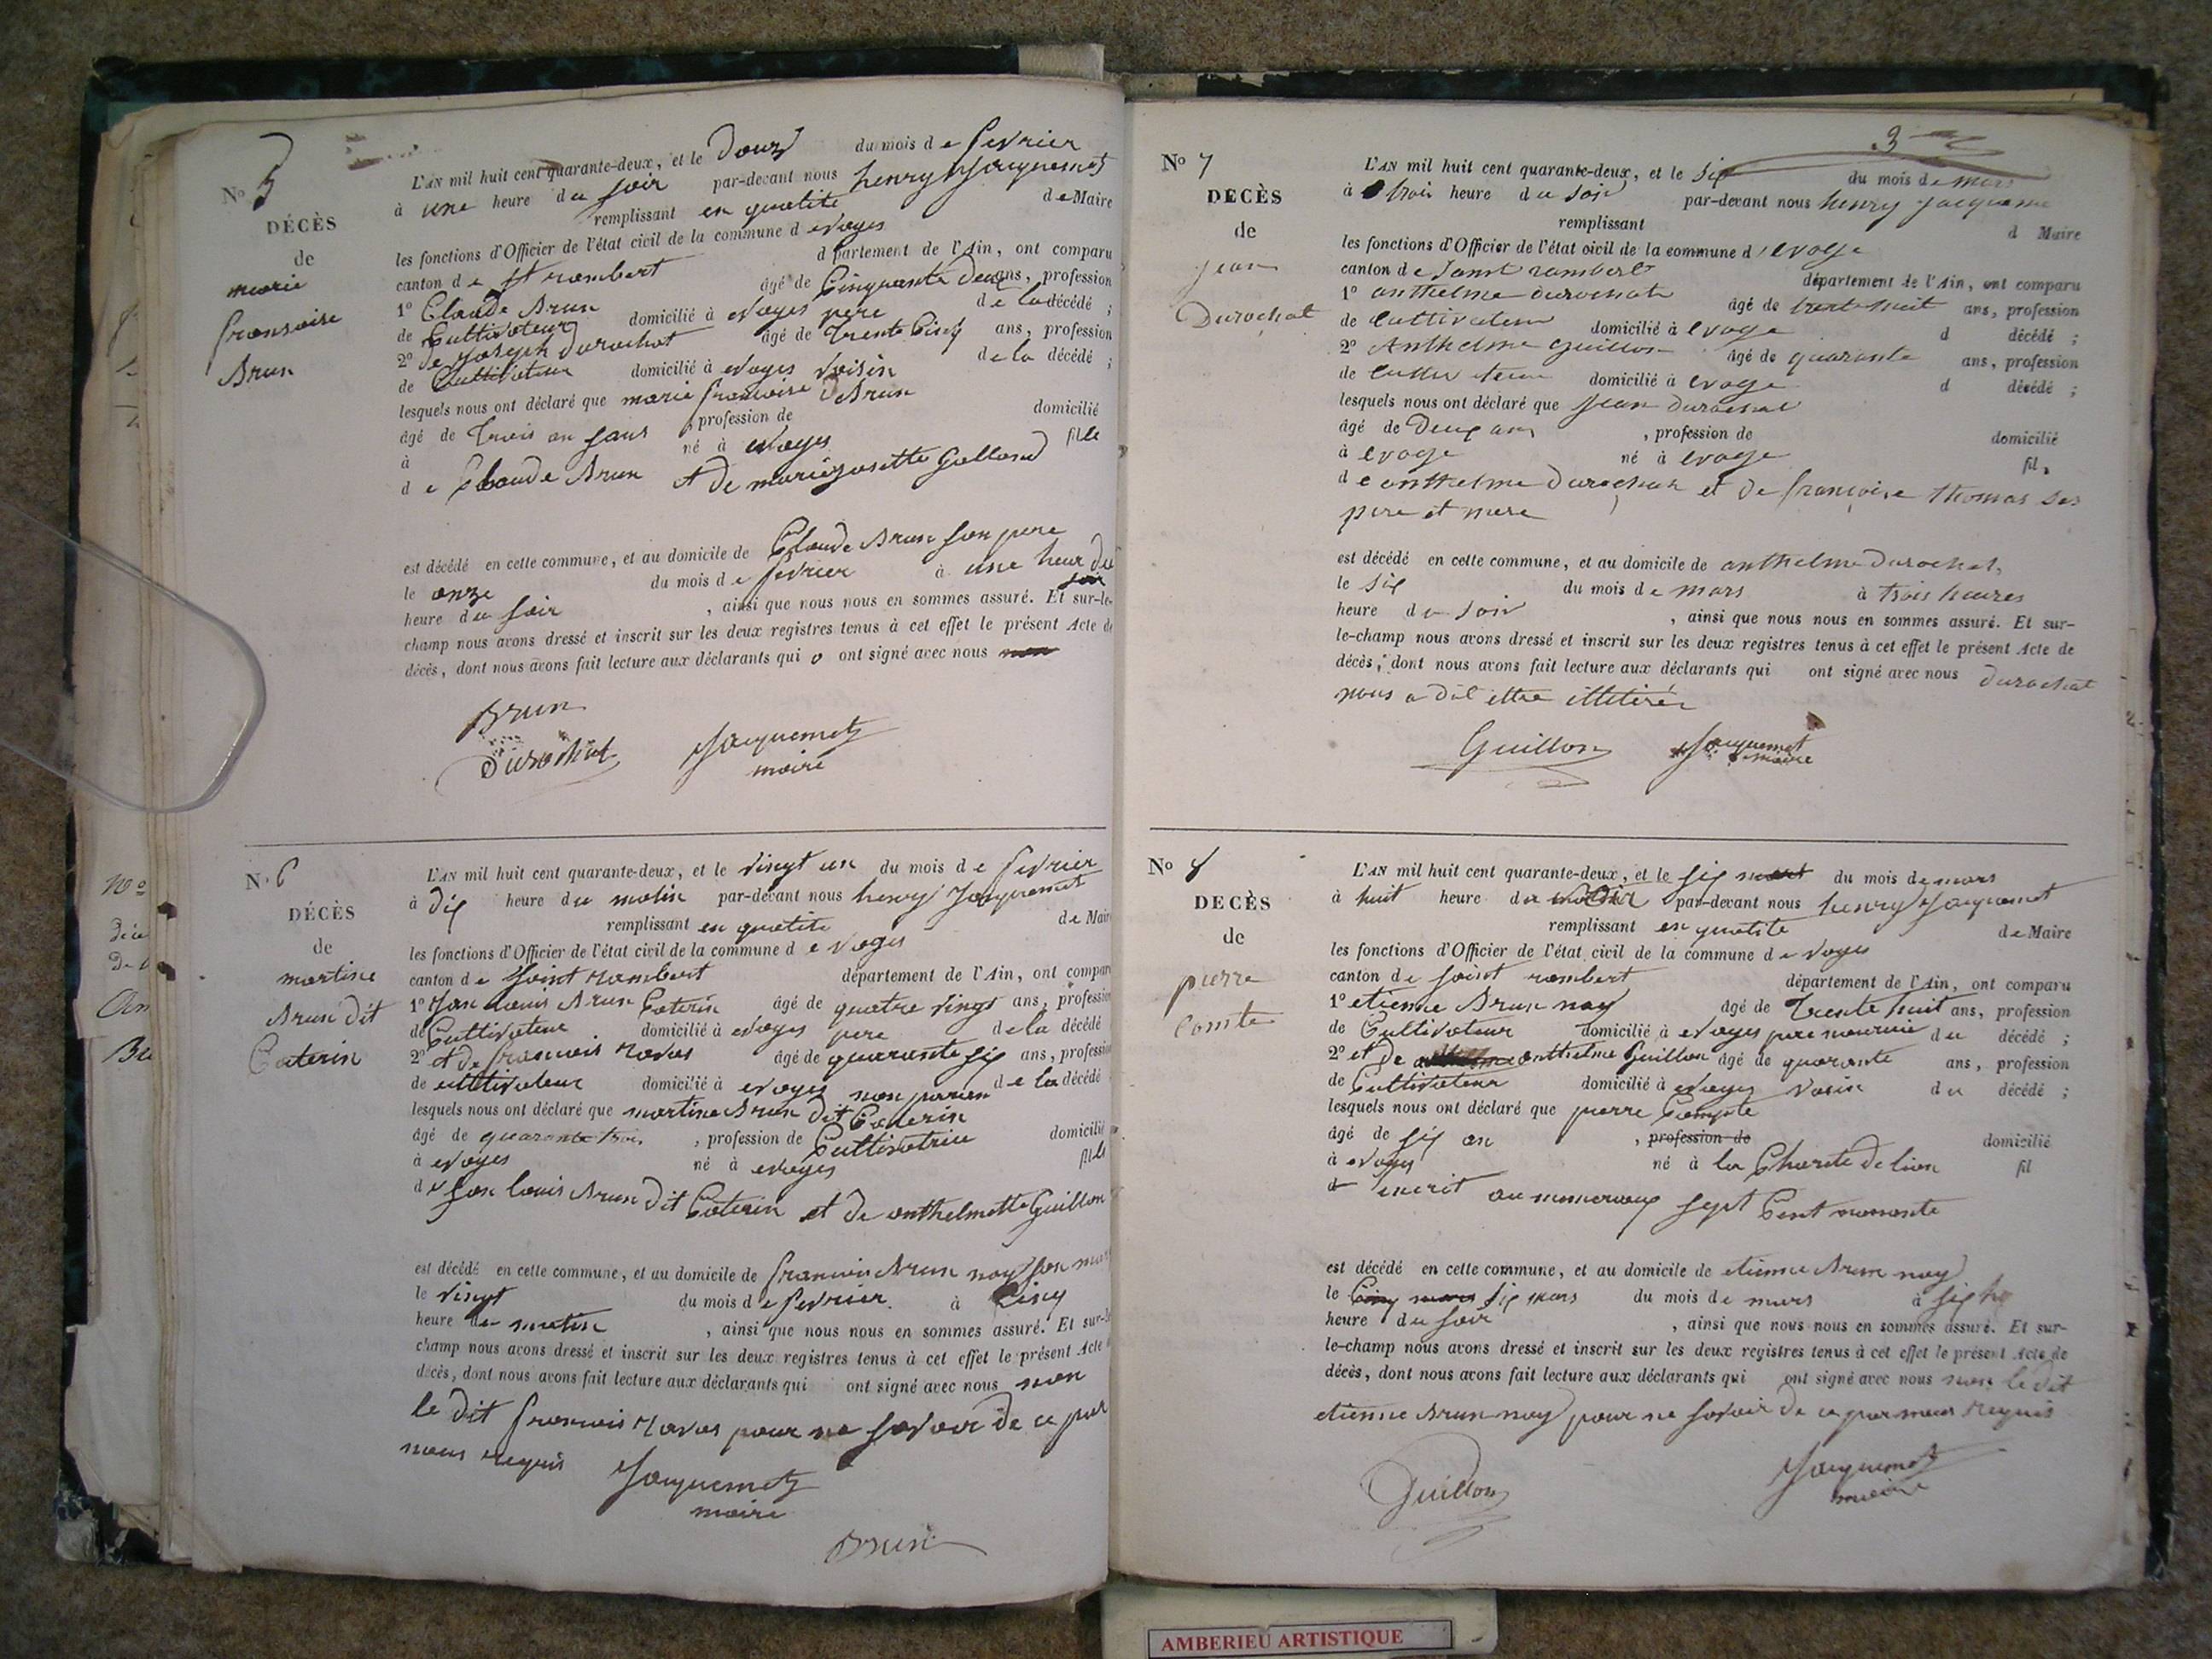 No 5
DÉCÈS
de
marie
fransoise
Brun
L'AN mil huit cent quarante-deux, et le douz du mois de fevrier
à une heure du soir par-devant nous henry Jacquemet
remplissant en qualité de Maire
les fonctions d'Officier de l'état civil de la commune d evoges
canton de st rambert département de l'Ain, ont comparu
1o Claude Brun âgé de Cinquante deux ans, profession
de Cultivateur domicilié à evoges pere de la décédé ;
2o de Joseph durochat âgé de trente Cinq ans, profession
de Cultivateur domicilié à evoges voisin de la décédé ;
lesquels nous ont déclaré que marie francoise Brun
âgé de trois an sans , profession de domicilié
à né à evoges fille
de Claude Brun et de marie josette Galland
est décédé en cette commune, et au domicile de Claude Brun son pere
le onze du mois de fevrier à une heur du
soir
heure du soir , ainsi que nous nous en sommes assuré. Et sur-le-
champ nous avons dressé et inscrit sur les deux registres tenus à cet effet le présent Acte de
décès, dont nous avons fait lecture aux déclarants qui o ont signé avec nous
Brun
Durochat Jacquemet
maire
No 6
DÉCÈS
de
martine
Brun dit
Caterin
L'AN mil huit cent quarante-deux, et le vingt un du mois de fevrier
à dix heure du matin par-devant nous henry Jacquemet
remplissant en qualite de Maire
les fonctions d'Officier de l'état civil de la commune d evoges
canton de saint rambert département de l'Ain, ont comparu
1o Jan louis Brun Caterin âgé de quatre vingt ans, profession
de Cultivateur domicilié à evoges pere de la décédé
2o et de francois ravas âgé de quarante six ans, profession
de cultivateur domicilié à evoges non parien de la décédé
lesquels nous ont déclaré que martine Brun dit Caterin
âgé de quarante trois , profession de Cultivatrice domicilié
à evoges né à evoges fille
de Jan louis Brun dit Caterin et de anthelmette Guillon
est décédé en cette commune, et au domicile de francois Brun noy son mari
le vingt du mois de fevrier à Cinq
heure du matin , ainsi que nous nous en sommes assuré. Et sur-le
champ nous avons dressé et inscrit sur les deux registres tenus à cet effet le présent Acte
décès, dont nous avons fait lecture aux déclarants qui ont signé avec nous non
le dit francois ravas pour ne savoir de ce par
nous requis Jacquemet
maire
Brun
3
No 7
DECÈS
de
jean
Durochat
L'AN mil huit cent quarante-deux, et le six du mois de mars
à trois heure du soir par-devant nous henry jacqueme
remplissant d Maire
les fonctions d'Officier de l'état civil de la commune d evoge
canton de saint rambert département de l'Ain, ont comparu
1o anthelme durochat âgé de trent huit ans, profession
de cultivateur domicilié à evoge d décédé ;
2o Anthelme guillon âgé de quarante ans, profession
de cultivateur domicilié à evoge d décédé ;
lesquels nous ont déclaré que jean durochat
âgé de deux ans , profession de domicilié
à evoge né à evoge fils
de anthelme durochat et de françoise thomas ses
pere et mere
est décédé en cette commune, et au domicile de anthelme durochat,
le six du mois de mars à trois heures
heure du soir , ainsi que nous nous en sommes assuré. Et sur-
le-champ nous avons dressé et inscrit sur les deux registres tenus à cet effet le présent Acte de
décès, dont nous avons fait lecture aux déclarants qui ont signé avec nous durochat
nous a dit ettre illetiré
Guillon Jacquemet
maire
No 8
DECÈS
de
pierre
comte
L'AN mil huit cent quarante-deux, et le six du mois de mars
à huit heure du par-devant nous henry Jacquemet
remplissant en qualite de Maire
les fonctions d'Officier de l'état civil de la commune d evoges
canton de saint rambert département de l'Ain, ont comparu
1o etienne Brun noy âgé de trente huit ans, profession
de Cultivateur domicilié à evoges pere nouricie du décédé ;
2o et de anthelme Guillon âgé de quarante ans, profession
de Cultivateur domicilié à evoges voisin du décédé ;
lesquels nous ont déclaré que pierre Compte
âgé de six an , profession de domicilié
à evoges né à la Charite de lion fil
d inscrit au numeraux sept Cent nonante
est décédé en cette commune, et au domicile de etienne Brun noy
le six mars du mois de mars à six he
heure du soir , ainsi que nous nous en sommes assuré. Et sur-
le-champ nous avons dressé et inscrit sur les deux registres tenus à cet effet le présent Acte de
décès, dont nous avons fait lecture aux déclarants qui ont signé avec nous non le dit
etienne Brun noy pour ne savoir de ce par nous requis
Guillon Jacquemet
maire
AMBERIEU ARTISTIQUE